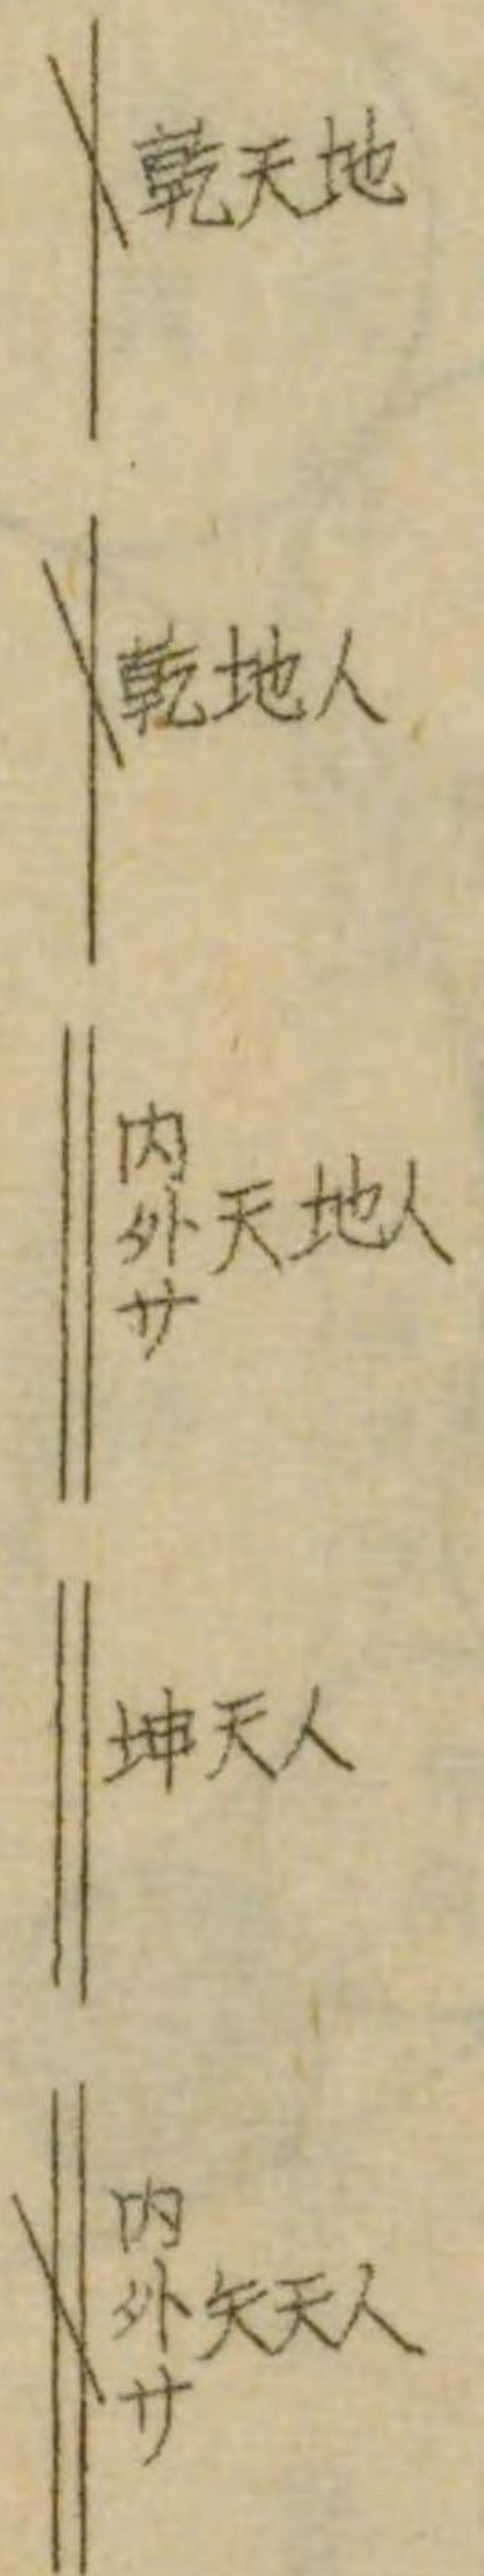 乾天地
乾地人
内外サ天地人
坤天人
内外サ矢天人